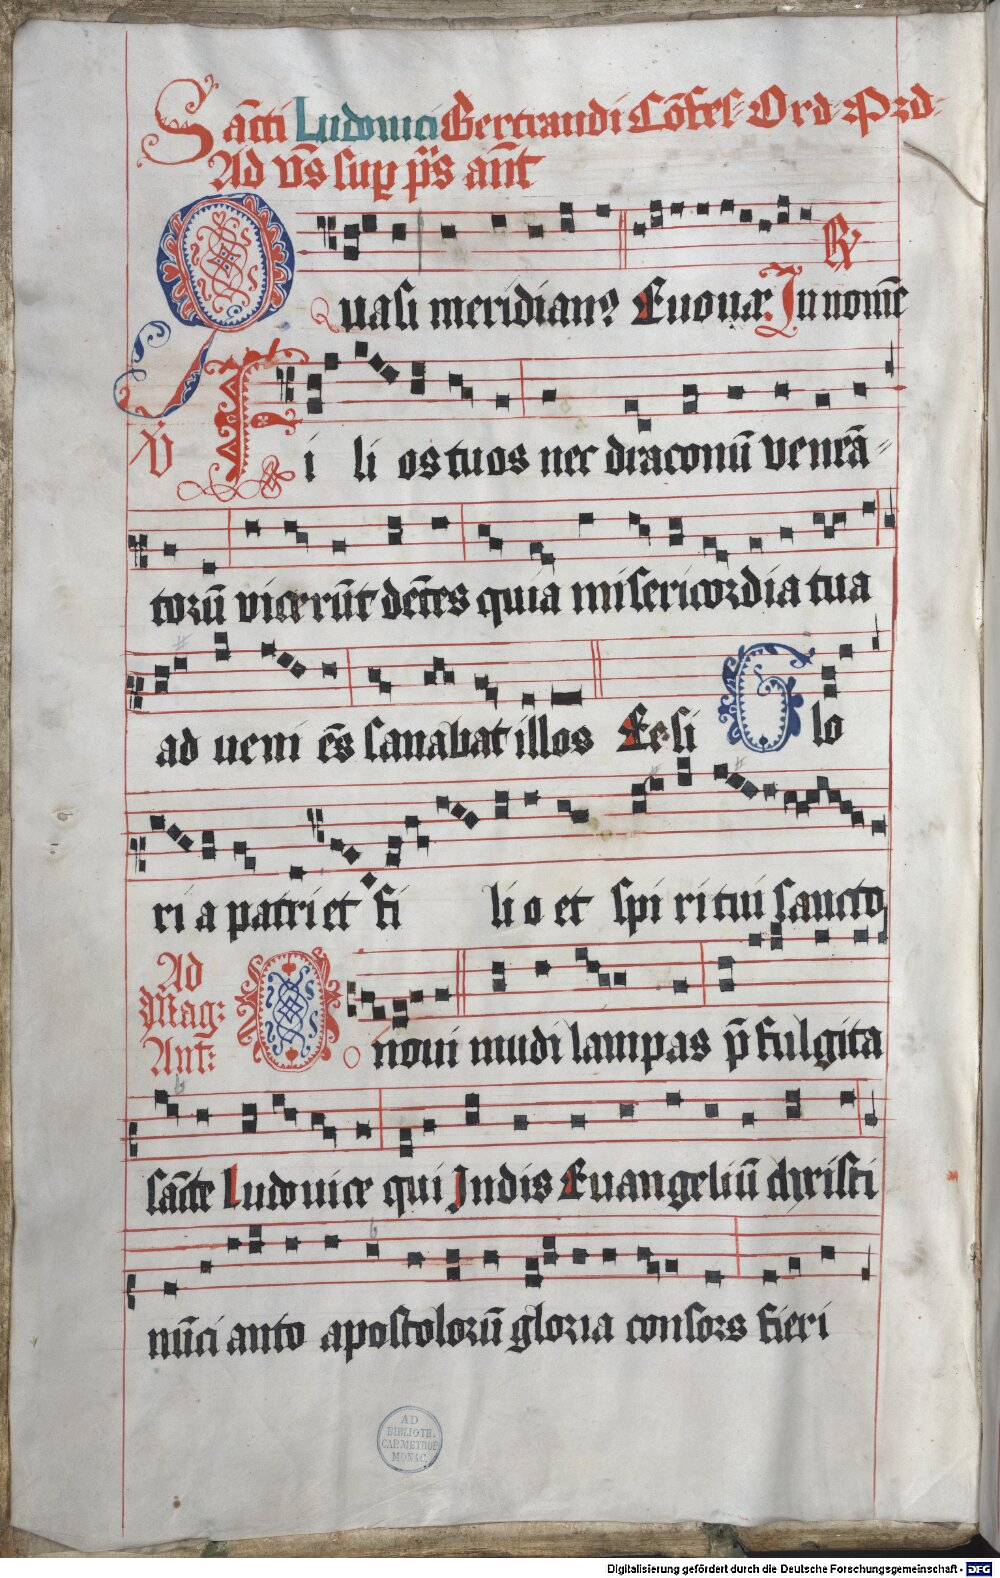 Sācti Ludouici Bertrandi Cōfes- Ord- Prd-
Ad v̄s sup p̄s ant̄
Quasi meridian9 Euouæ In nomīe
R/
V
Fili os tuos nec draconū venēā-
torū vicerūt dētes quia misericordia tua
ad ueni ēs sanabat illos Ee si Glo
ri a patri et fi li o et spi ri tui sancto
Ad
Mag:
Ant:
O noui mūdi lampas p̄fulgita
sācte Ludouice qui Indis Euangeliū christi
nūci anto apostolorū gloria consors fieri
AD
BIBLIOTH.
CAP. METROP.
MONAC.
Digitalisierung gefördert durch die Deutsche Forschungsgemeinschaft - DFG